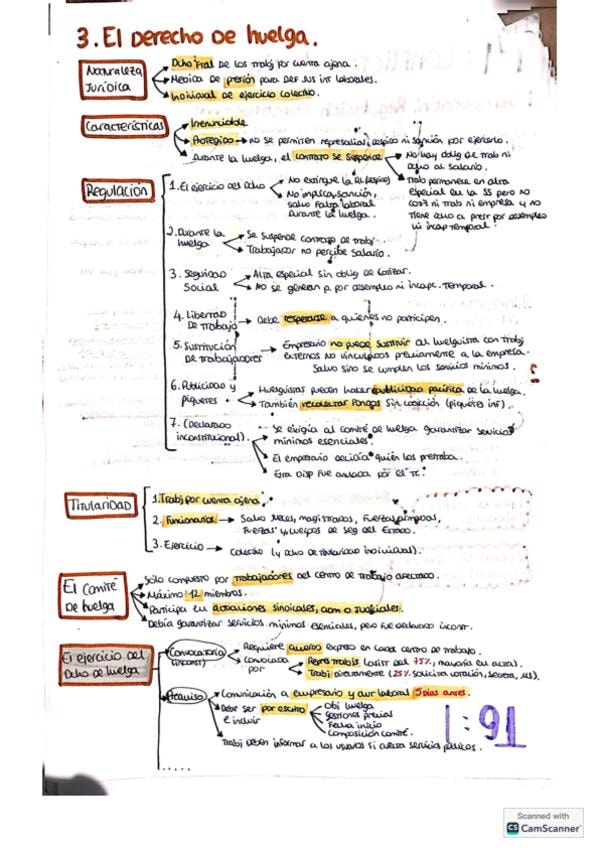 3. El DERECHO DE huelga.
Naturaleza Jurídica
Dcho Fral DE LOS Trabj por cuenta ajena.
MEDIDA DE presión para DEF SUS int laborales.
Individual de ejercicio colectivo.
Características
Irrenunciable
Protegido → no se permiten represalias, despido ni sanción por ejercerlo.
Durante la huelga, el contrato se suspende
No hay oblig de trabj ni dcho al salario.
Trabj permanece en alta
especial en la SS pero no
cotz ni trabj ni empresa y no
tiene dcho a prestr por desempleo
ni incap temporal.
Regulación
1. El ejercicio del Dcho
No extingue la
No implica sanción,
salvo Falta laboral
Durante la huelga.
2. Durante la huelga
Se suspende contrato de trabj.
Trabajador no percibe salario.
3. Seguridad Social
Alta especial sin oblig de cotizar.
No se generan p por desempleo ni incapc. Temporal.
4. Libertad DE Trabajo
Debe respetarse a quienes no participen.
5. Sustitución DE trabajadores
Empresario no puede sustituir al huelguista con trabj
externos no vinculados previamente a la empresa.
Salvo si no se cumplen los servicios mínimos.
6. Publicidad y piquetes
Huelguistas pueden hacer publicidad pacífica de la huelga.
También recolectar fondos sin coacción (piquetes inf).
7. (Declarado inconstitucional).
Se exigía al comité de huelga garantizar servicios
mínimos esenciales
El empresario decidía quién los prestaba.
Esta Disp fue anulada por el TC.
Titularidad
1. Trabj por cuenta ajena.
2. Funcionarios → Salvo Jueces, magistrados, Fuerzas armadas,
Fuerzas y cuerpos de seg del Estado.
3. Ejercicio → Colectivo (y dcho de titularidad individual).
El Comité DE huelga
Solo compuesto por trabajadores del centro de trabajo afectado.
Máximo 12 miembros.
Participa en actuaciones sindicales, adm o judiciales.
Debía garantizar servicios mínimos esenciales, pero fue declarado inconst.
El ejercicio del Dcho de huelga
Convocatoria (inconst)
Requiere acuerdo expreso en cada centro de trabajo.
Convocada por
Repres trabjs (asist del 75%, mayoría en acta).
Trabj directamente (25% solicita votación, secreta, MS).
Preaviso
Comunicación a empresario y aut laboral 5 días antes.
Debe ser por escrito e incluir
Obj huelga
Gestiones previas
Fecha inicio
Composición comité.
Trabj deben informar a los usuarios si afecta servicios públicos.
.....
Scanned with
CS CamScanner